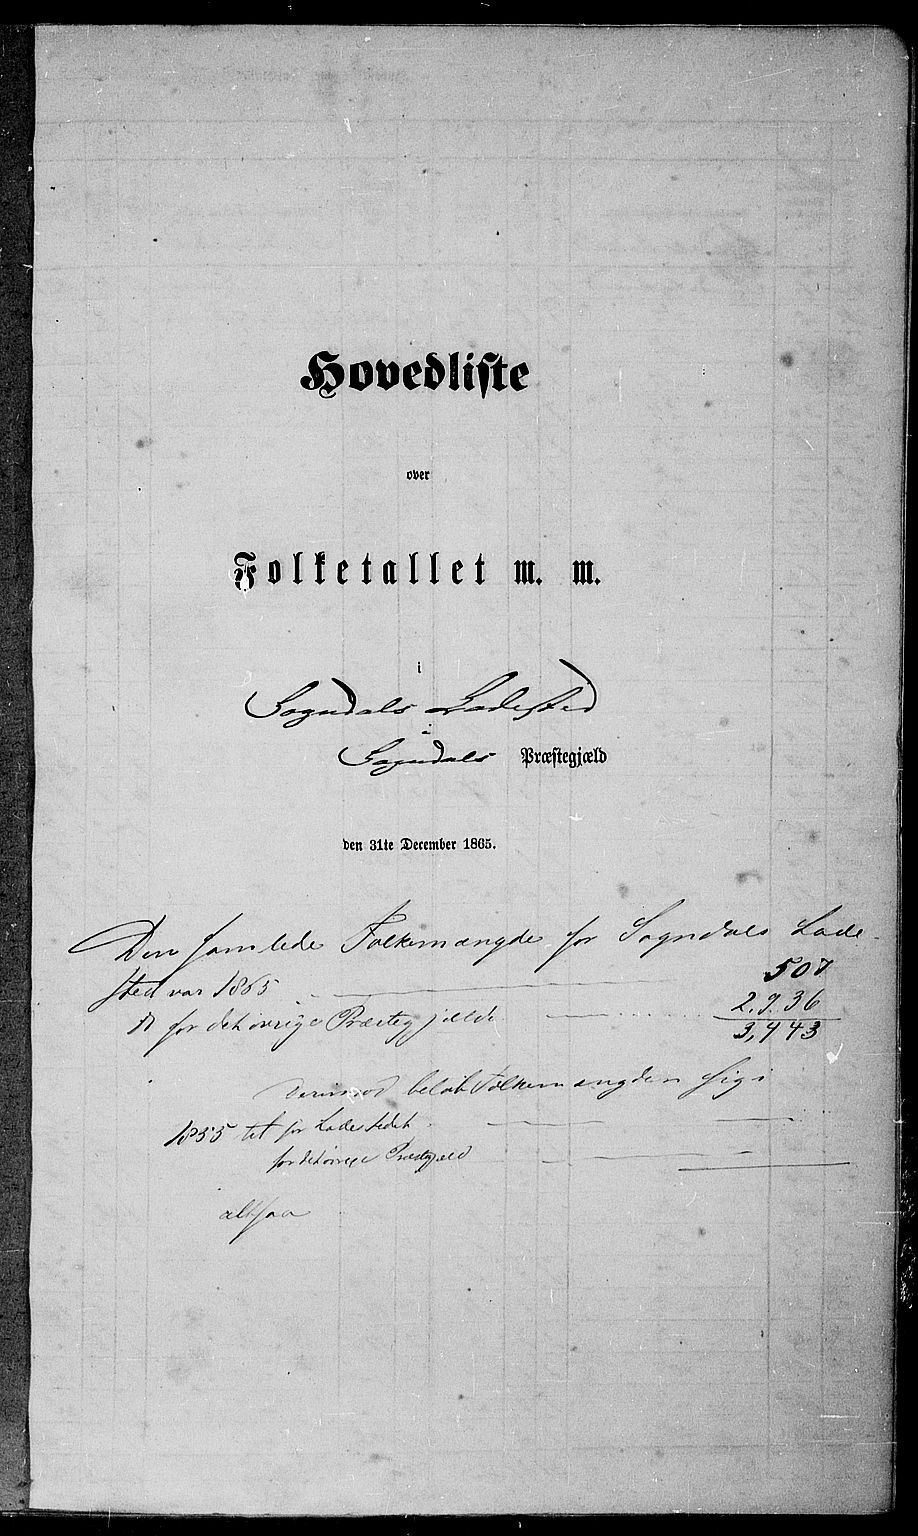 Hovedliste
over
Folketallet m. m.
i
Sogndals Ladested
i
Sogndals Præstegjæld
den 31te December 1865.
Den samlede Folkemængde for Sogndals Lade-
sted var 1865 507
for det øvrige Præstegjælde 2,936
3,443
Derimod beløb Folkemængden sig i
1855 til for Ladestedet
for det øvrige Præstegjæld
altsaa